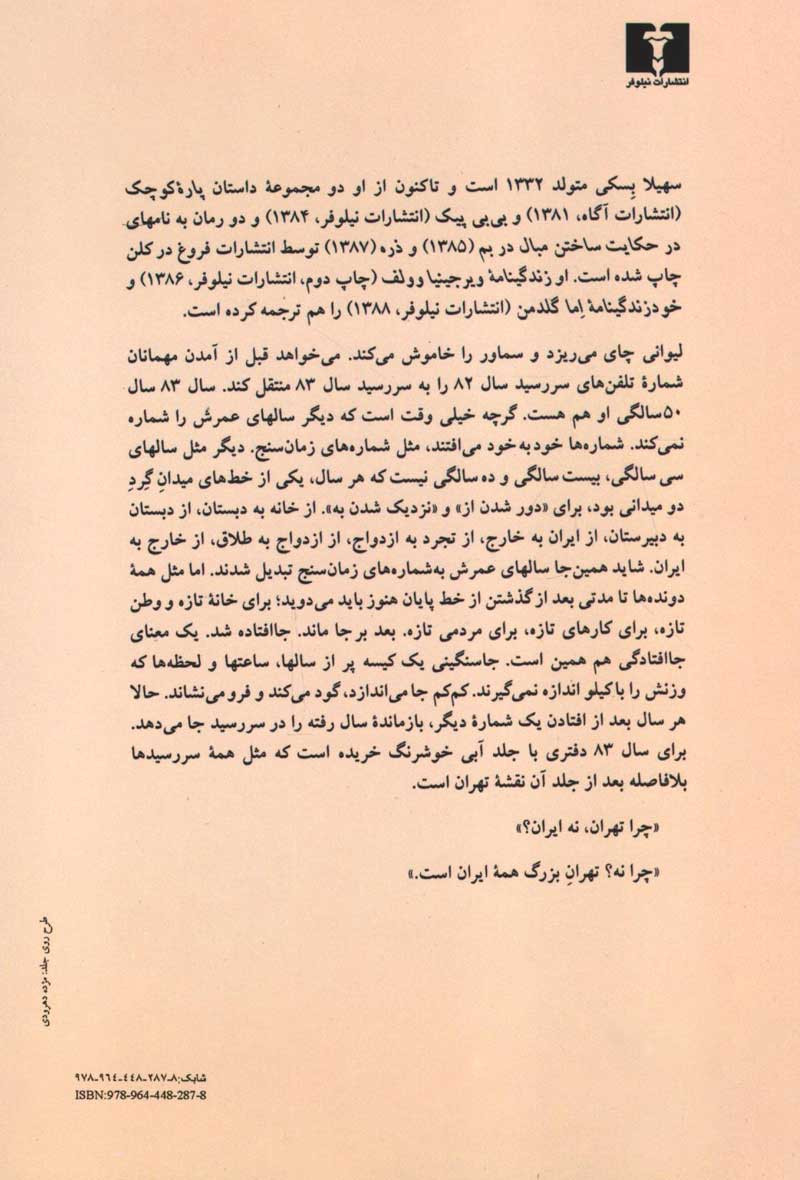 انتشارات نیلوفر
سهیلا بِسکی متولد ۱۳۳۲ است و تاکنون از او دو مجموعهٔ داستان پارهٔ کوچک
(انتشارات آگاه، ۱۳۸۱) و بی‌بی پیک (انتشارات نیلوفر، ۱۳۸۴) و دو رمان به نامهای
در حکایت ساختن مبال در بم (۱۳۸۵) و ذره (۱۳۸۷) توسط انتشارات فروغ در کلن
چاپ شده است. او زندگینامهٔ ویرجینیا وولف (چاپ دوم، انتشارات نیلوفر، ۱۳۸۶) و
خودزندگینامهٔ اِما گلدمن (انتشارات نیلوفر، ۱۳۸۸) را هم ترجمه کرده است.
لیوانی چای می‌ریزد و سماور را خاموش می‌کند. می‌خواهد قبل از آمدن مهمانان
شمارهٔ تلفن‌های سررسید سال ۸۲ را به سررسید سال ۸۳ منتقل کند. سال ۸۳ سال
۵۰سالگی او هم هست. گرچه خیلی وقت است که دیگر سالهای عمرش را شماره
نمی‌کند. شماره‌ها خودبه‌خود می‌افتند، مثل شماره‌های زمان‌سنج. دیگر مثل سالهای
سی سالگی، بیست سالگی و ده سالگی نیست که هر سال، یکی از خط‌های میدانِ گِردِ
دو میدانی بود، برای «دور شدن از» و «نزدیک شدن به». از خانه به دبستان، از دبستان
به دبیرستان، از ایران به خارج، از تجرد به ازدواج، از ازدواج به طلاق، از خارج به
ایران. شاید همین‌جا سالهای عمرش به‌شماره‌های زمان‌سنج تبدیل شدند. اما مثل همهٔ
دونده‌ها تا مدتی بعد از گذشتن از خط پایان هنوز باید می‌دوید؛ برای خانهٔ تازه و وطن
تازه، برای کارهای تازه، برای مردمی تازه. بعد برجا ماند. جاافتاده شد. یک معنای
جاافتادگی هم همین است. جاسنگینی یک کیسه پر از سالها، ساعتها و لحظه‌ها که
وزنش را با کیلو اندازه نمی‌گیرند. کم‌کم جا می‌اندازد، گود می‌کند و فرو می‌نشاند. حالا
هر سال بعد از افتادن یک شمارهٔ دیگر، بازماندهٔ سال رفته را در سررسید جا می‌دهد.
برای سال ۸۳ دفتری با جلد آبی خوشرنگ خریده است که مثل همهٔ سررسیدها
بلافاصله بعد از جلد آن نقشهٔ تهران است.
«چرا تهران، نه ایران؟»
«چرا نه؟ تهرانِ بزرگ همهٔ ایران است.»
طرح روی جلد: مژده دهرودی
شابک: ۸-۲۸۷-۴۴۸-۹۶۴-۹۷۸
ISBN:978-964-448-287-8